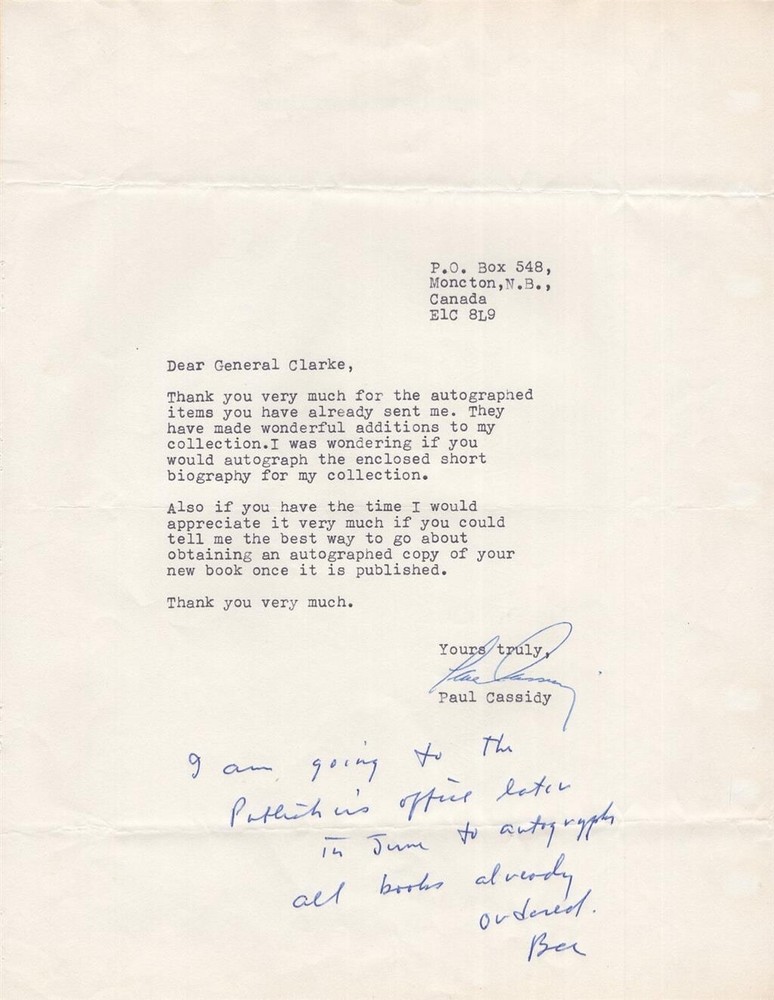 P.O. Box 548,
Moncton,N.B.,
Canada
E1C 8L9
Dear General Clarke,
Thank you very much for the autographed
items you have already sent me. They
have made wonderful additions to my
collection.I was wondering if you
would autograph the enclosed short
biography for my collection.
Also if you have the time I would
appreciate it very much if you could
tell me the best way to go about
obtaining an autographed copy of your
new book once it is published.
Thank you very much.
Yours truly,
Paul Cassidy
Paul Cassidy
I am going to the
Publisher's office later
in June to autograph
all books already
ordered.